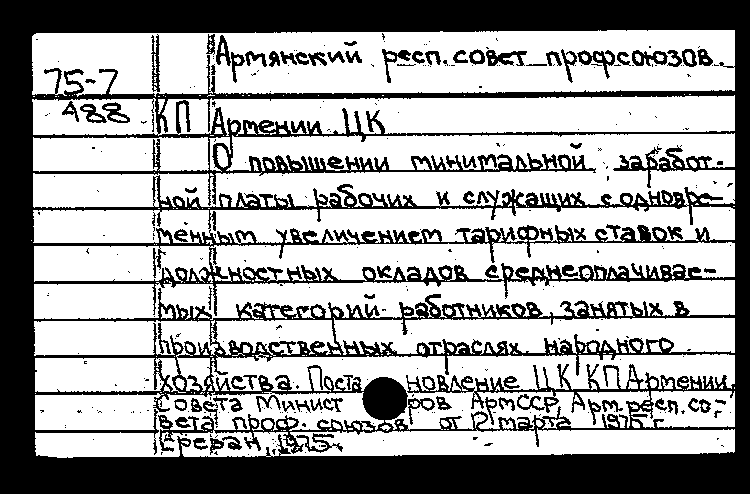 Армянский респ. совет профсоюзов.
75-7
488
КП Армении. ЦК
О повышении минимальной заработ-
ной платы рабочих и служащих с одновре-
менным увеличением тарифных ставок и
должностных окладов среднеоплачивае-
мых категорий работников, занятых в
производственных отраслях народного
хозяйства. Постановление ЦК КП Армении,
Совета Министров АрмССР, Арм.респ.со-
вета проф. союзов от 12 марта 1975 г.
Ереван, 1975.